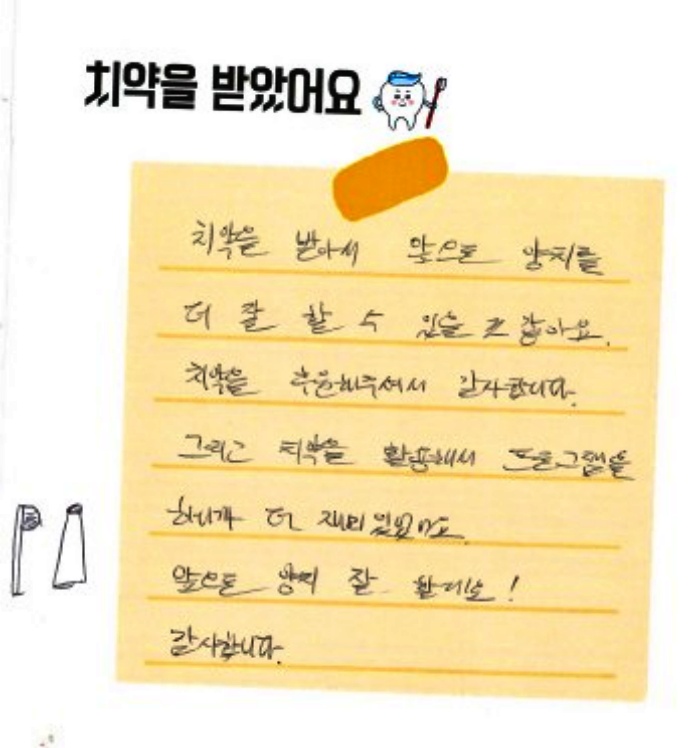 치약을 받았어요
치약을 받아서 앞으로 양치를
더 잘 할 수 있을 것 같아요.
치약을 후원해주셔서 감사합니다.
그리고 치약을 활용해서 프로그램을
하니까 더 재미있었어요.
앞으로 양치 잘 할게요!
감사합니다.